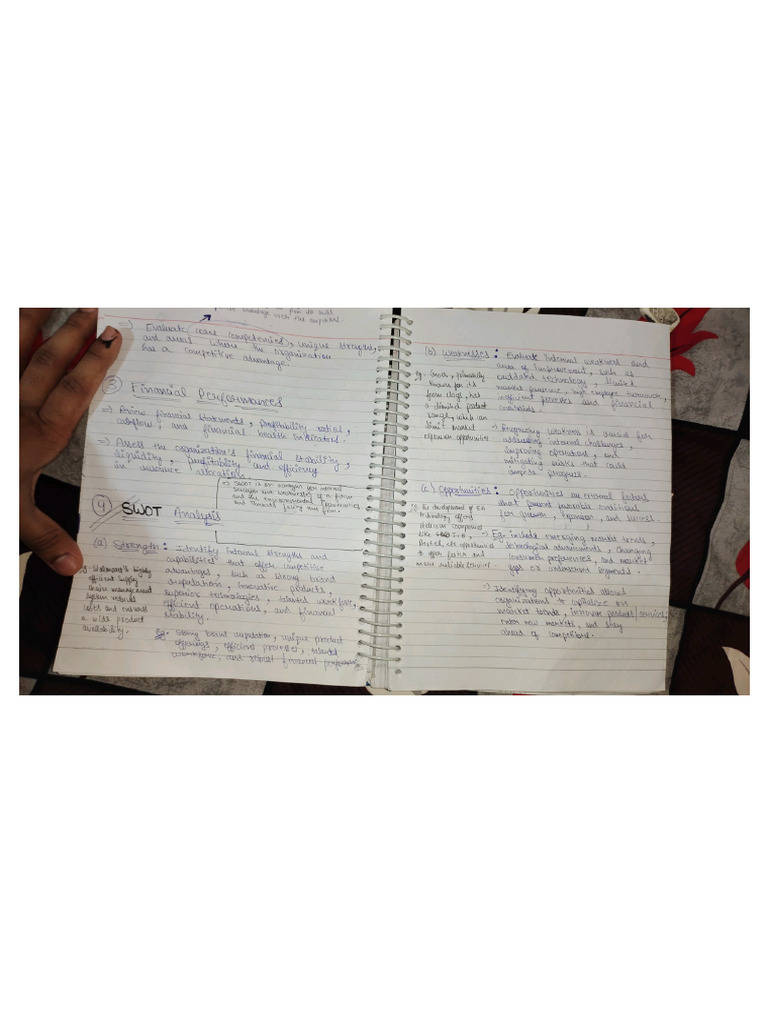 with the customers.
=) Evaluate core competencies, unique strengths,
and areas where the organization
has a competitive advantage.
③ Financial Performances
=) Review financial statements, profitability ratios,
cashflow, and financial health indicators.
=) Assess the organization's financial stability,
liquidity, profitability and efficiency
in resource allocation.
=) SWOT is an analysis for internal
strengths and weaknesses of a firm
and the environmental opportunities
and threats facing the firm.
④ SWOT Analysis
(a) Strength: Identify Internal strengths and
capabilities that offer competitive
advantages, such as strong brand
reputation, innovative products,
superior technologies, talented workforce,
efficient operations, and financial
stability.
eg. Walmart's highly
efficient supply
chain management
system reduces
costs and ensures
a wide product
availability.
Eg: strong brand reputation, unique product
offerings, efficient processes, talented
workforce, and robust financial performance
(b) Weaknesses: Evaluate Internal weakness and
areas of improvement, such as
outdated technology, limited
market presence, high employee turnover,
inefficient processes and financial
constraints.
eg. Crocs, primarily
known for its
foam clogs, has
a limited product
range, which can
limit market
expansion opportunities
=) Recognizing weakness is crucial for
addressing internal challenges,
improving operations, and
mitigating risks that could
impede progress.
(c) Opportunities: Opportunities are external factors
that present favorable conditions
for growth, expansion, and success.
=) The development of 5G
technology offers
telecom companies
like Jio,
Airtel, etc opportunities
to offer faster and
more reliable service.
=) Eg: include emerging market trends,
technological advancements, changing
consumer preferences, and market
gaps or underserved segments.
=) Identifying opportunities allows
organizations to capitalize on
market trends, innovate products/services,
enter new markets, and stay
ahead of competitors.